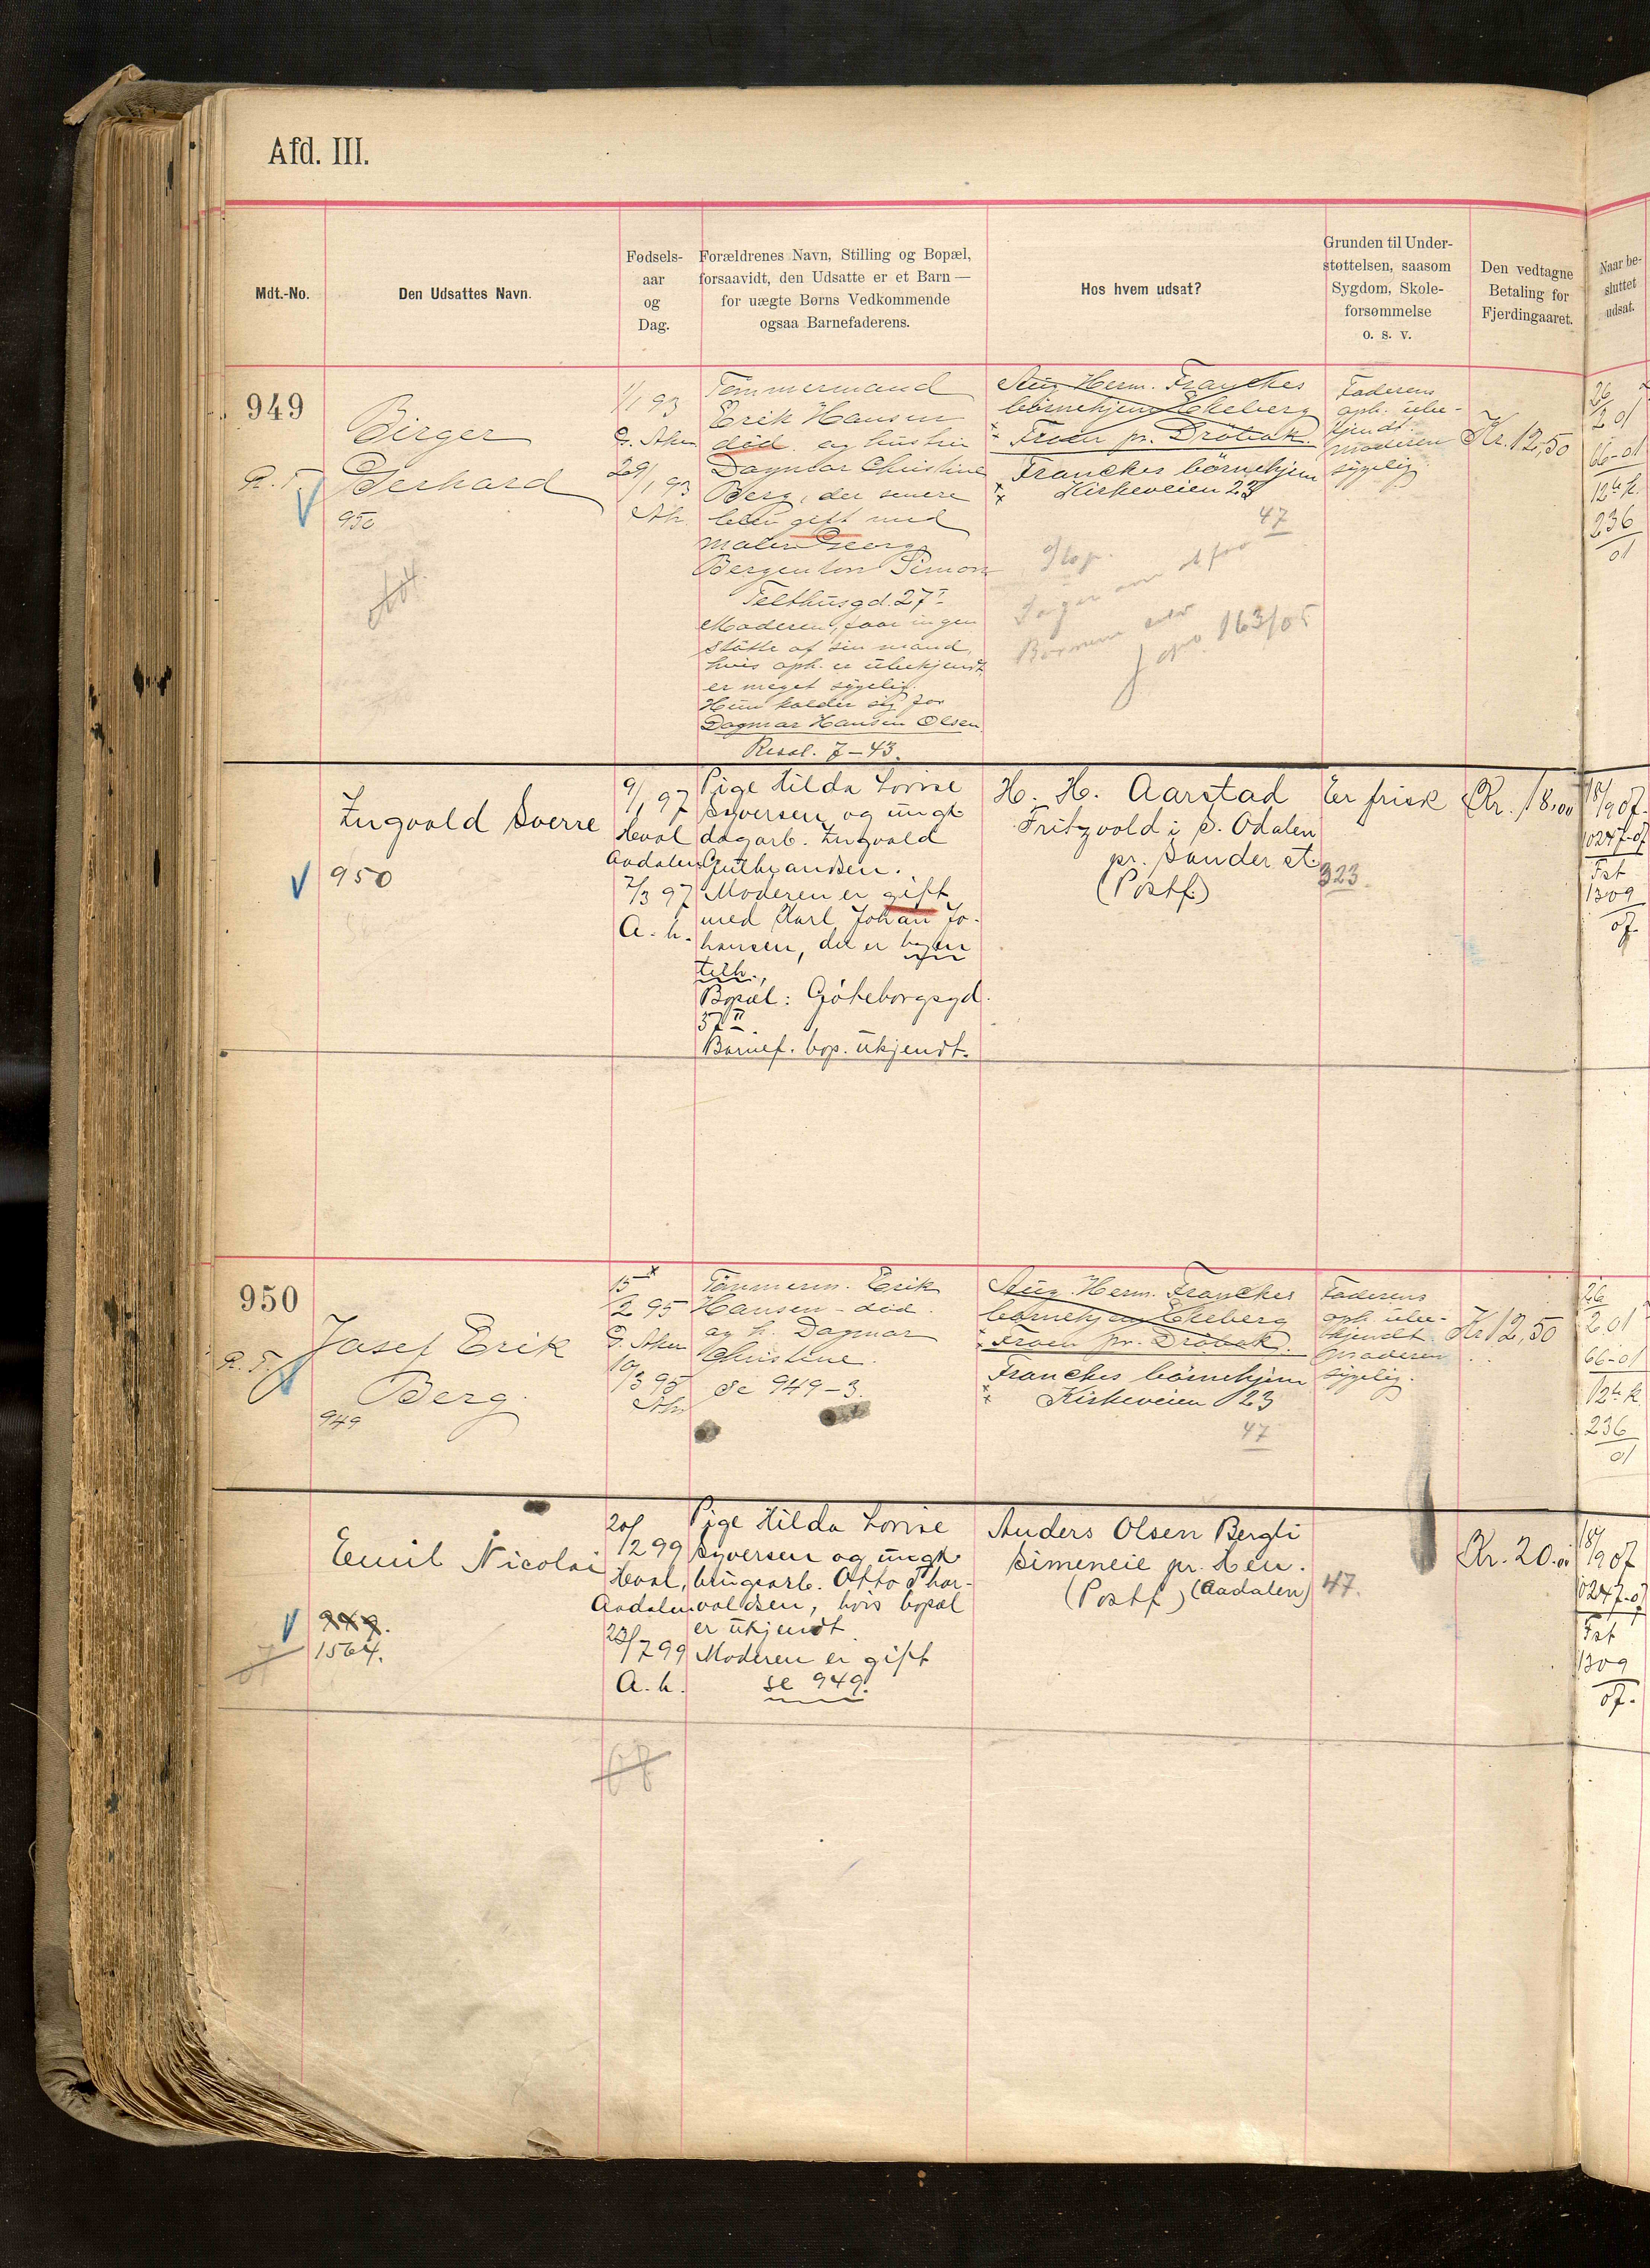 Afd. III.
Mdt.-No.
Den Udsattes Navn.
Fødsels-
aar
og
Dag.
Forældrenes Navn, Stilling og Bopæl,
forsaavidt, den Udsatte er et Barn —
for uægte Børns Vedkommende
ogsaa Barnefaderens.
Hos hvem udsat?
Grunden til Under-
støttelsen, saasom
Sygdom, Skole-
forsømmelse
o. s. v.
Den vedtagne
Betaling for
Fjerdingaaret.
Naar be-
sluttet
udsat.
949
Birger
Gerhard
950
1/1 93
G. Aker
29/1 93
Ah.
Tømmermand
Erik Hansen
død og hustru
Dagmar Christine
Berg, der senere
blev gift med
maler Georg
Bergenton Simon
Telthusgd. 27 I
Moderen, faar ingen
støtte af sin mand,
hvis oph. er ubekjendt
er meget sygelig.
Hun kalder sig for
Dagmar Hansen Olsen
Resol. 7-43.
Aug. Herm. Franckes
børnehjem Ekeberg
Froen pr. Drøbak.
Franckes børnehjem
Kirkeveien 23
47
163/05
Faderens
oph. ube-
kjendt.
moderen
sygelig
Kr. 12,50
26
2 01
66-01
12te k.
236
01
Ingvald Sverre
950
9/1 97
Hval
Aadalen
7/3 97
A. h.
Pige Hilda Lovise
Syversen og ungk.
dagarb. Ingvald
Gulbrandsen.
Moderen er gift
med Karl Johan Jo-
hansen, det er byen
tilh.,
Bopæl: Göteborgsgd.
37 II.
Barnef. bop. ukjendt.
H. H. Aarstad
Fritzvold i S. Odalen
pr. Sander st.
(Postf.)
323
Er frisk
Kr. 18.00
18/9 07.
10247-07
Fat
1309
07.
950
R. F.
Josef Erik
Berg.
949
15
2 95
G. Aker
10/3 95
Ah
Tømmerm. Erik
Hansen - død.
og h. Dagmar
Christine.
Se 949-3.
Aug. Herm. Franckes
børnehjem Ekeberg
Froen pr. Drøbak.
Franckes børnehjem
Kirkeveien 23
47
Faderens
oph. ube-
kjendt
Moderen
sygelig.
Kr 12,50
26
2 01
66-01
12te k.
236
01
Emil Nicolai
949.
1564.
20/12 99
Hval,
Aadalen
23/7 99
A. h.
Pige Hilda Lovise
Syversen og ungk.
brugsarb. Otto Thor-
valdsen, hvis bopæl
er ukjendt
Moderen er gift
se 949.
Anders Olsen Bergli
Simeneie pr. Hen.
(Postf.) (Aadalen)
47.
Kr. 20.00
18/9 07
10247-07
Fat
1309
07.